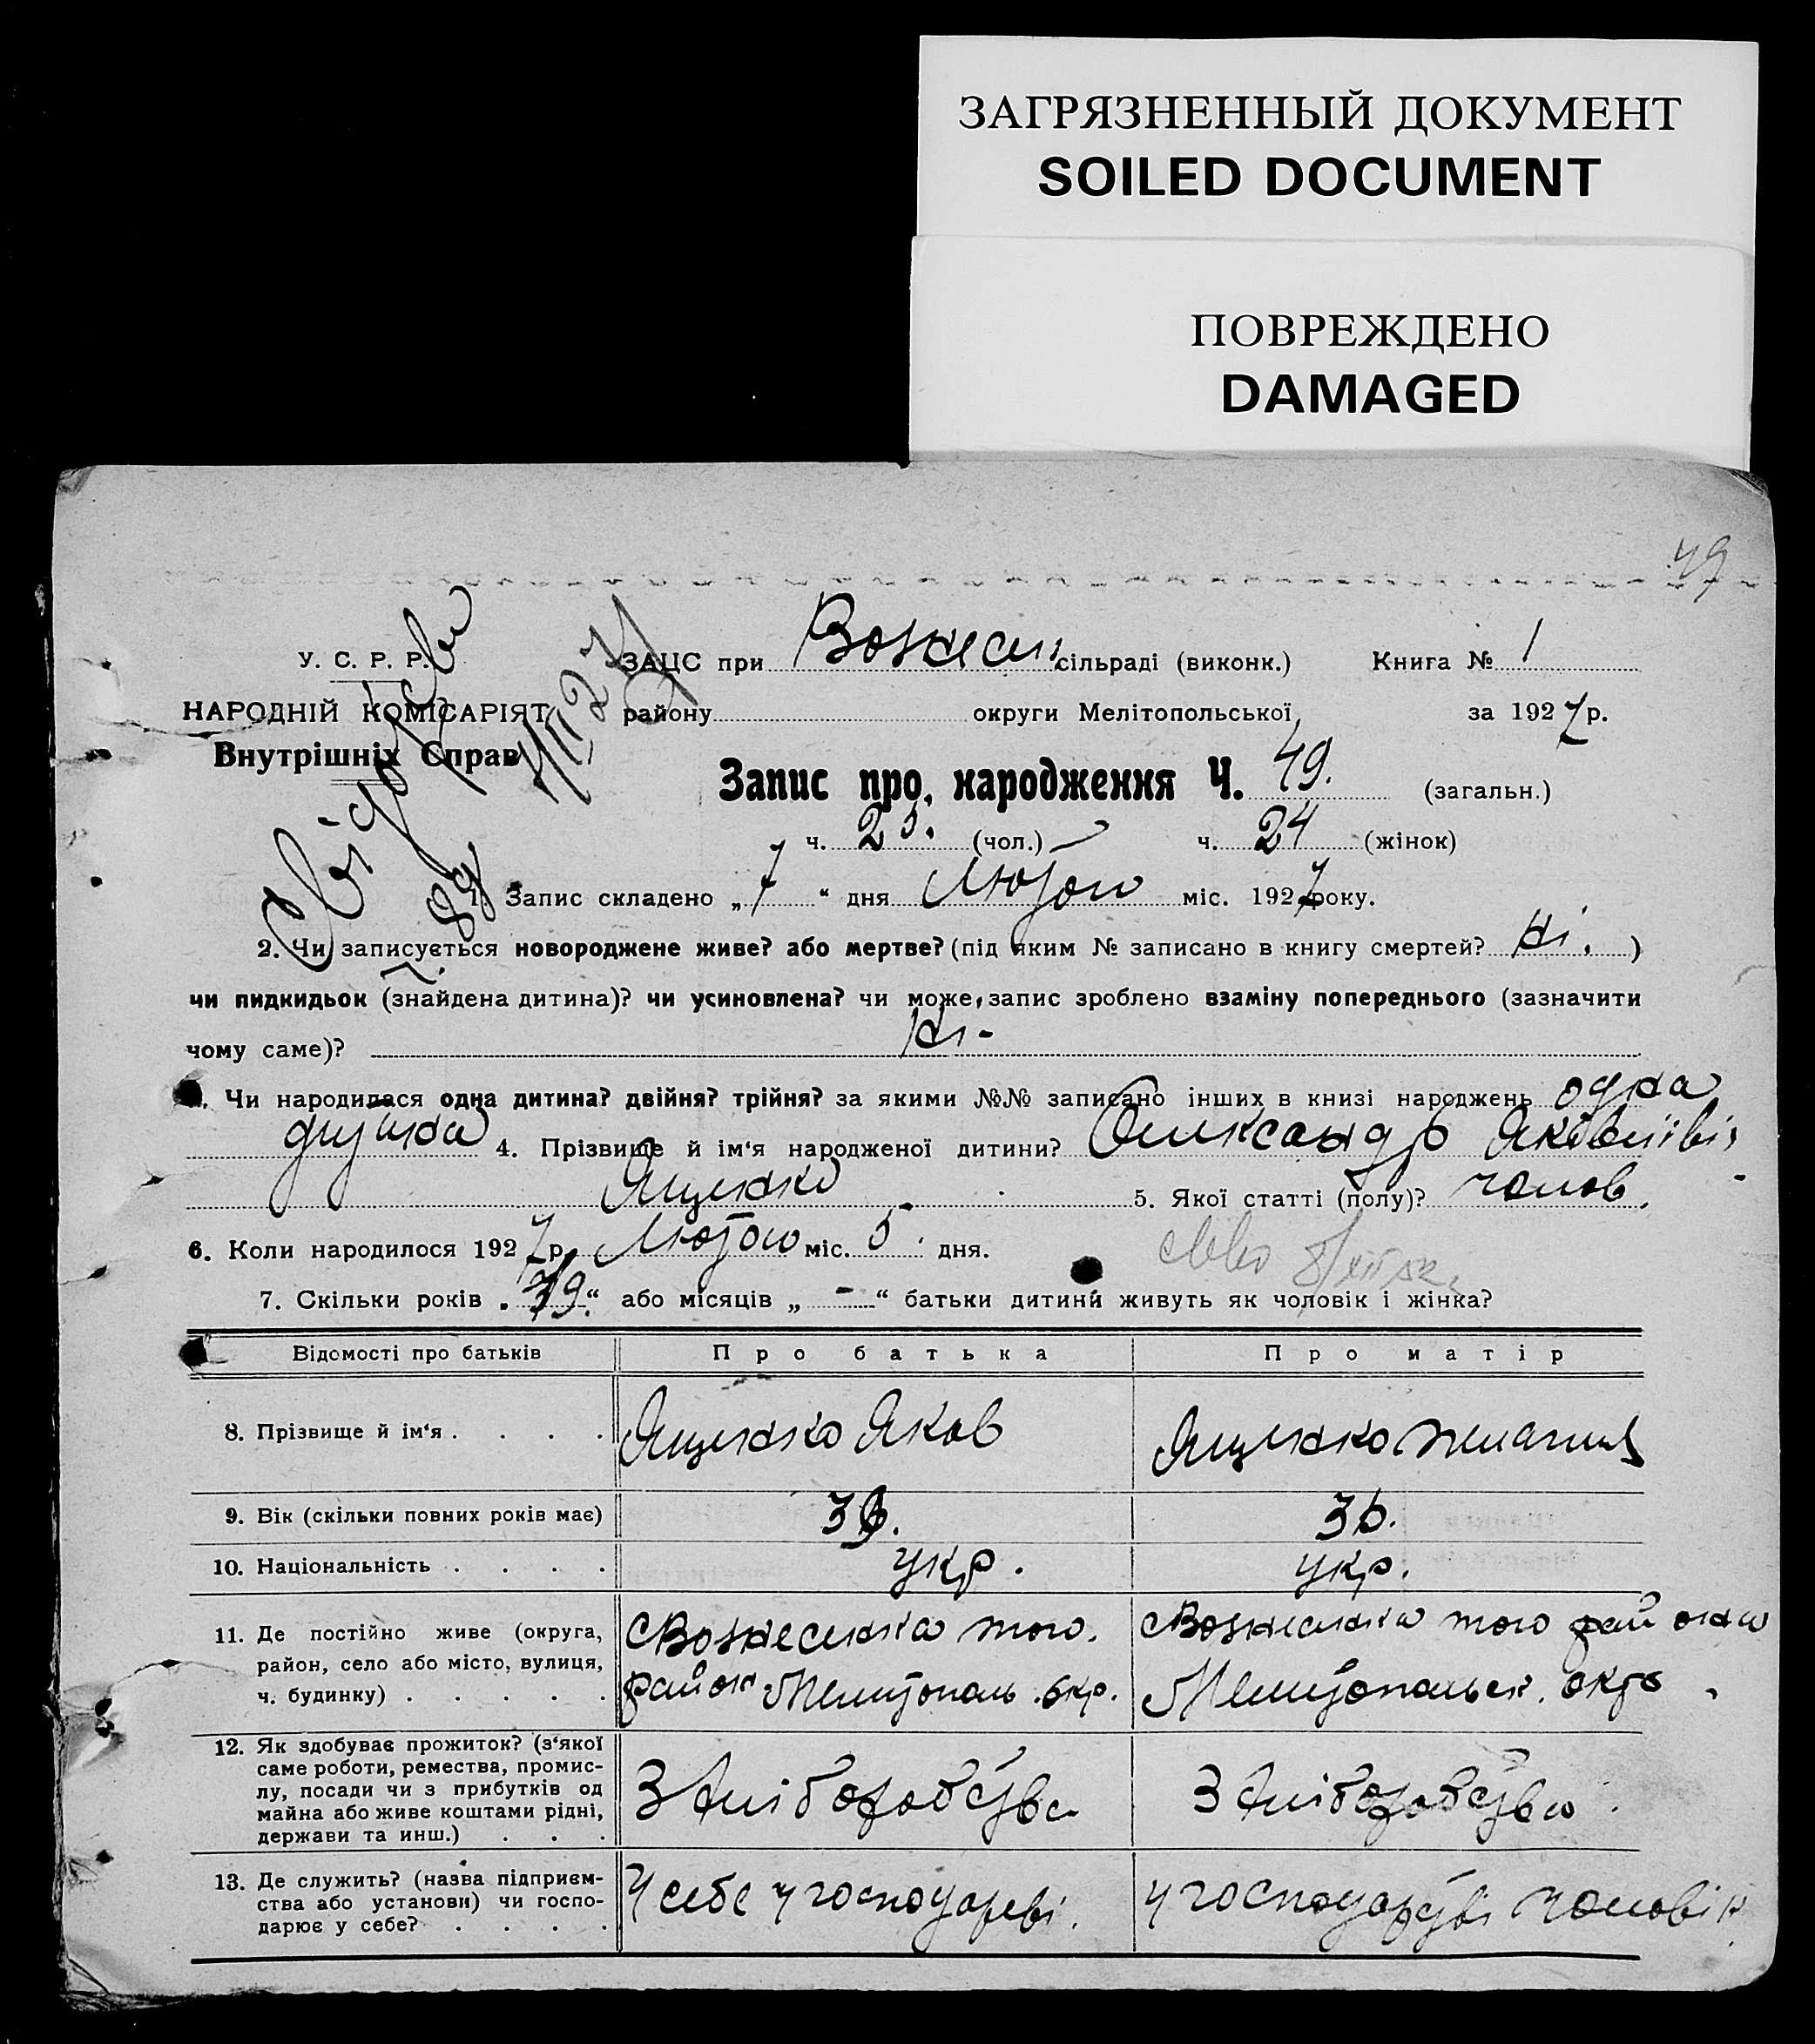 ЗАГРЯЗНЕННЫЙ ДОКУМЕНТ
SOILED DOCUMENT
ПОВРЕЖДЕНО
DAMAGED
49
У. С. Р. Р.
НАРОДНІЙ КОМІСАРІЯТ
Внутрішніх Справ
ЗАЦС при Вознесен сільраді (виконк.) Книга № 1
району округи Мелітопольської за 1927 р.
Запис про народження Ч. 49. (загальн.)
ч. 25. (чол.) ч. 24 (жінок)
1. Запис складено „7“ дня Лютого міс. 1927 року.
2. Чи записується новороджене живе? або мертве? (під яким № записано в книгу смертей? Ні. )
чи пидкидьок (знайдена дитина)? чи усиновлена? чи може, запис зроблено взаміну попереднього (зазначити
чому саме)? Ні -
Чи народилася одна дитина? двійня? трійня? за якими №№ записано інших в книзі народжень одна
4. Прізвище й ім‘я народженої дитини? Олександр Яковліві
Ященко 5. Якої статті (полу)? чолов.
6. Коли народилося 1927 р. Лютого міс. 5 дня.
7. Скільки років „ “ або місяців „ - “ батьки дитини живуть як чоловік і жінка?
Відомості про батьків Про батька Про матір
8. Прізвище й ім‘я . . . . Ященко Яков Ященко
9. Вік (скільки повних років має)
10. Національність . . . . укр. укр.
11. Де постійно живе (округа, район, село або місто, вулиця, ч. будинку) . . . . .
с Вознесенка того. район Мелітополь. окр.
с Вознесенка того района Мелітопольск. окр
12. Як здобуває прожиток? (з‘якої саме роботи, ремества, промислу, посади чи з прибутків од майна або живе коштами рідні, держави та инш.) . . .
З хліборобства З хліборобства
13. Де служить? (назва підприємства або установи) чи господарює у себе? . . . .
У себе у господареві. у господарстві чоловік